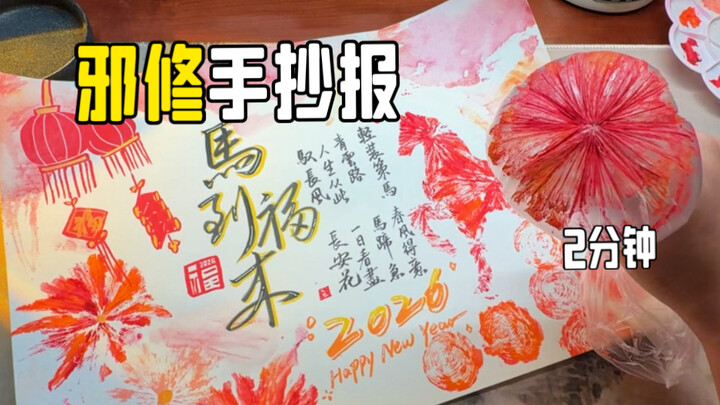 邪修手抄报
2分钟
馬到福来
輕裝策馬
青雲路
人生从此
馭長風
春風得意
馬蹄急
一日看盡
長安花
2026
福
2026
Happy New Year